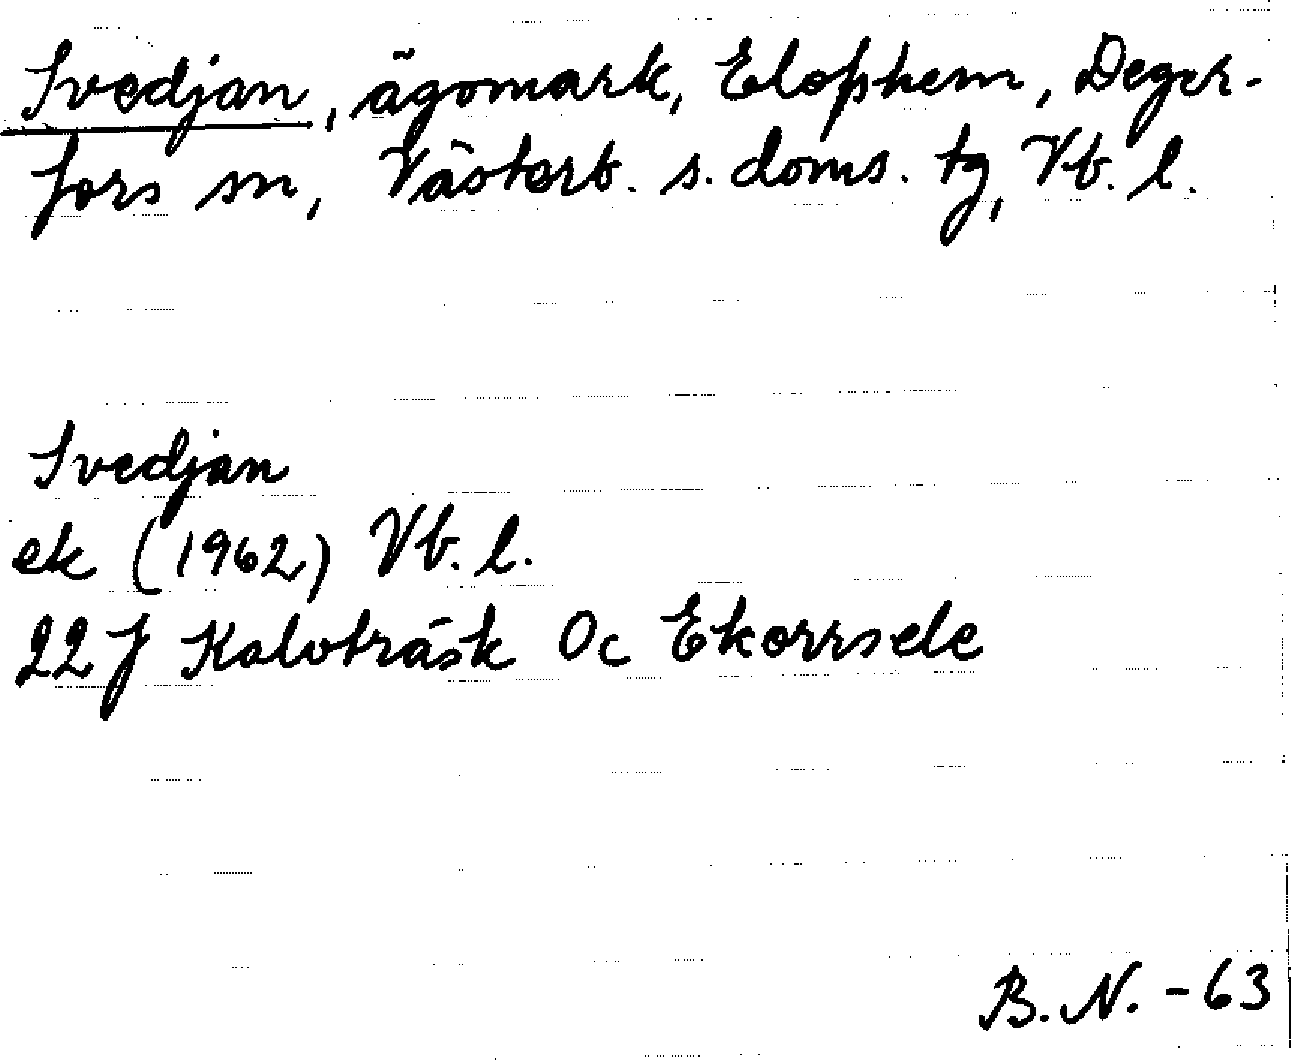 Svedjan, ägomark, Elofshem, Deger-
fors sn, Västerb. s. doms. tg, Vb. l.
Svedjan
ek (1962) Vb. l.
22 J Kalvträsk 0c Ekorrsele
B. N. - 63